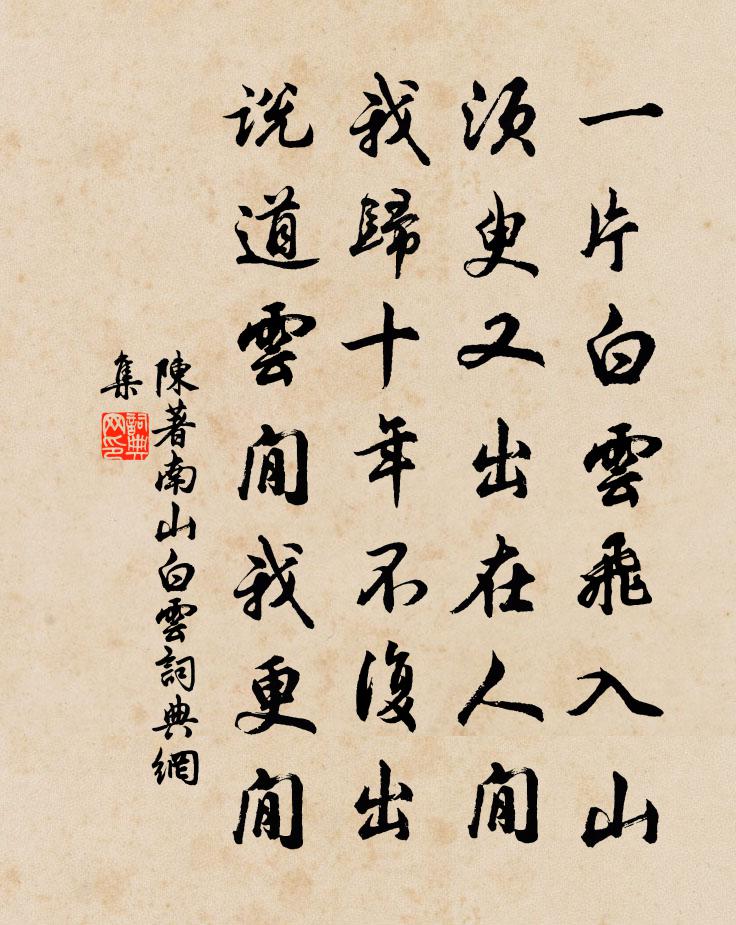 一片白雲飛入山
須臾又出在人閒
我歸十年不復出
說道雲閒我更閒
陳著南山白雲詞典網
集
詞典
网印